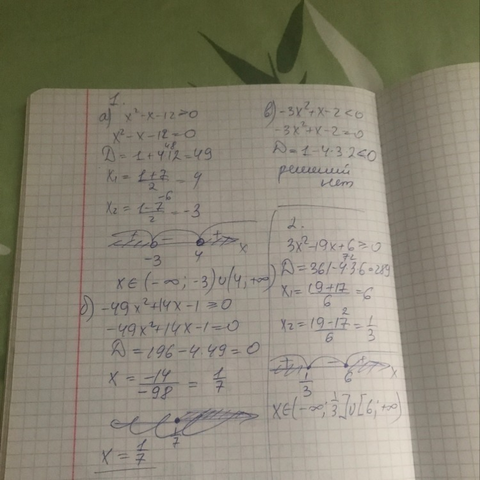 1.
а) x²-x-12≥0
x²-x-12=0
D=1+4·12=49
x₁=(1+7)/2=4
x₂=(1-7)/2=-3
+ - + x
-3 4
x∈(-∞;-3)∪(4;+∞)
б) -49x²+14x-1≥0
-49x²+14x-1=0
D=196-4·49=0
x=-14/-98=1/7
1/7
x=1/7
в) -3x²+x-2<0
-3x²+x-2=0
D=1-4·3·2<0
решений
нет
2.
3x²-19x+6≥0
D=361-4·3·6=289
x₁=(19+17)/6=6
x₂=(19-17)/6=1/3
+ - + x
1/3 6
x∈(-∞;1/3]∪[6;+∞)